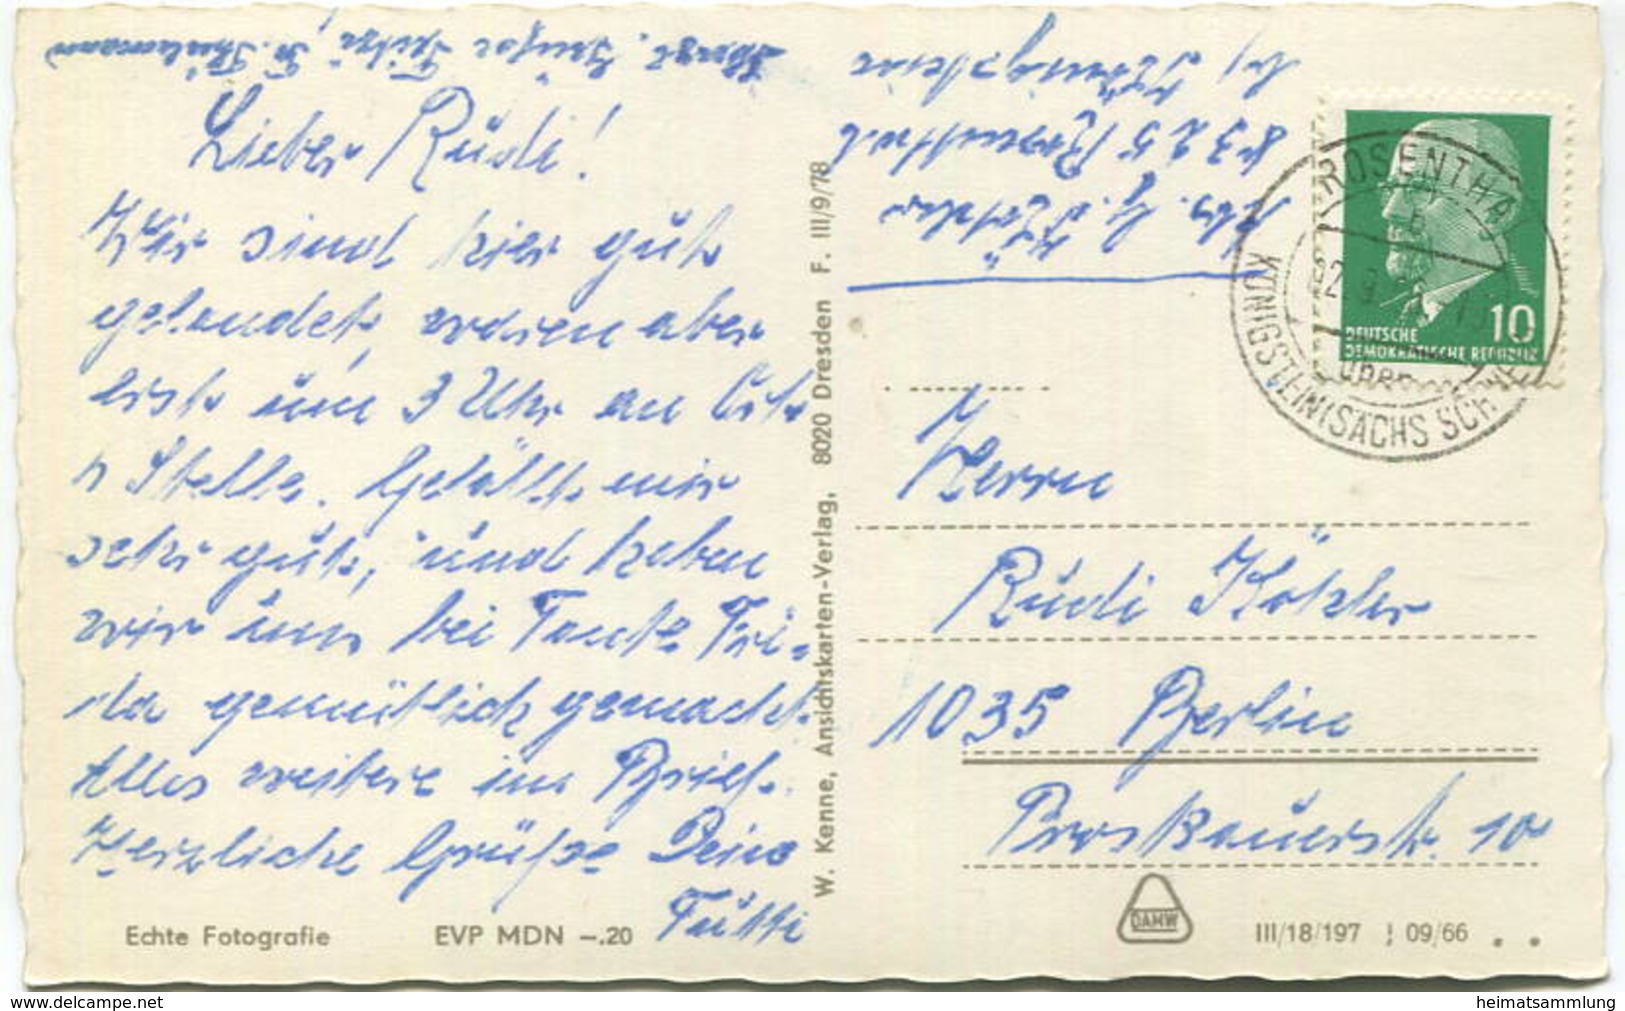 Lieber Rudi!
Wir sind hier gut
gelandet, waren aber
erst um 3 Uhr an Ort
u Stelle. Gefällt mir
sehr gut, und haben
wir uns bei Tante Fri-
da gemütlich gemacht.
Alles weitere im Brief.
Herzliche Grüße Deine
Tutti
Grüße Fritz, Fr. Thielemann
Abs. G. Köhler
8325 Rosenthal
b/ Königstein
Herrn
Rudi Köhler
1035 Berlin
Proskauerstr. 10
ROSENTHAL
KÖNIGSTEIN (SÄCHS SCHWEIZ)
DEUTSCHE
DEMOKRATISCHE REPUBLIK
10
W. Kenne, Ansichtskarten-Verlag, 8020 Dresden F. III/9/78
Echte Fotografie EVP MDN -.20
DAMW
III/18/197 09/66
https://www.delcampe.net
heimatsammlung